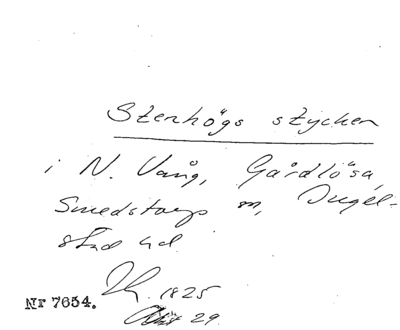 Stenhögs stycken
i N. Vång, Gårdlösa,
Smedstorps sn, Ingel-
stad hd
1825
29
Nr 7654.